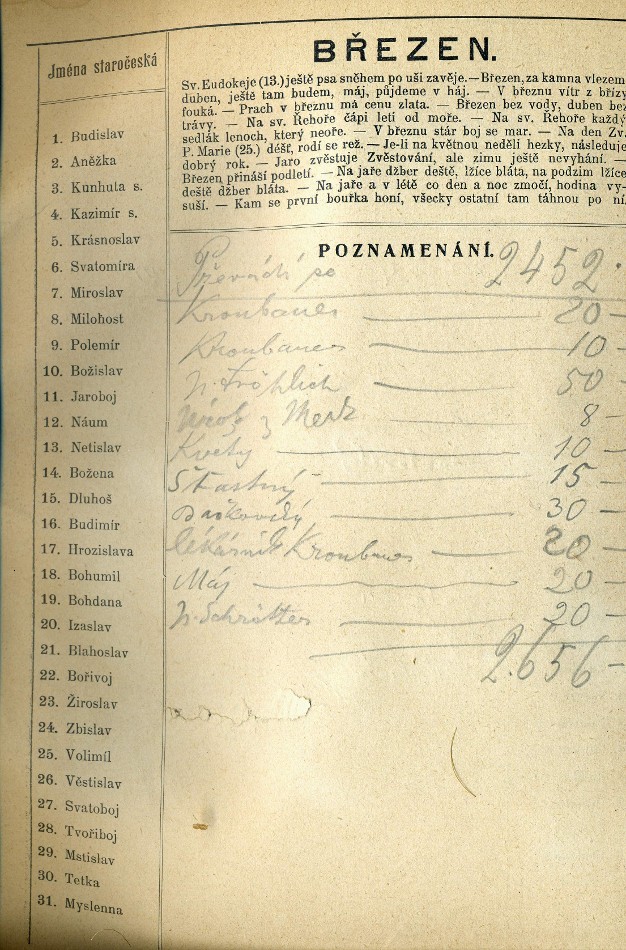 Jména staročeská
1. Budislav
2. Anežka
3. Kunhuta s.
4. Kazimír s.
5. Krásnoslav
6. Svatomíra
7. Miroslav
8. Milohost
9. Polemír
10. Božislav
11. Jaroboj
12. Náum
13. Netislav
14. Božena
15. Dluhoš
16. Budimír
17. Hrozislava
18. Bohumil
19. Bohdana
20. Izaslav
21. Blahoslav
22. Bořivoj
23. Žiroslav
24. Zbislav
25. Volimíl
26. Věstislav
27. Svatoboj
28. Tvořiboj
29. Mstislav
30. Tetka
31. Myslenna
BŘEZEN.
Sv. Eudokeje (13.) ještě psa sněhem po uši zavěje. — Březen, za kamna vlezem,
duben, ještě tam budem, máj, půjdeme v háj. — V březnu vítr z břízy
fouká. — Prach v březnu má cenu zlata. — Březen bez vody, duben bez
trávy. — Na sv. Řehoře čápi letí od moře. — Na sv. Řehoře každý
sedlák lenoch, který neoře. — V březnu stár boj se mar. — Na den Zv.
P. Marie (25.) déšť, rodí se rež. — Je-li na květnou neděli hezky, následuje
dobrý rok. — Jaro zvěstuje Zvěstování, ale zimu ještě nevyhání. —
Březen přináší podletí. — Na jaře džber deště, lžíce bláta, na podzim lžíce
deště džber bláta. — Na jaře a v létě co den a noc zmočí, hodina vy-
suší. — Kam se první bouřka honí, všecky ostatní tam táhnou po ní.
POZNAMENÁNÍ.
Převádí se 2452.
Kroubauer — 20 —
Kroubauer — 10 —
p. Fröhlich — 50 —
z 8 —
Květy — 10 —
Šťastný — 15 —
30 —
lékárník Kroubauer — 20 —
Máj — 20 —
p. Schrötter — 20 —
2.656 —